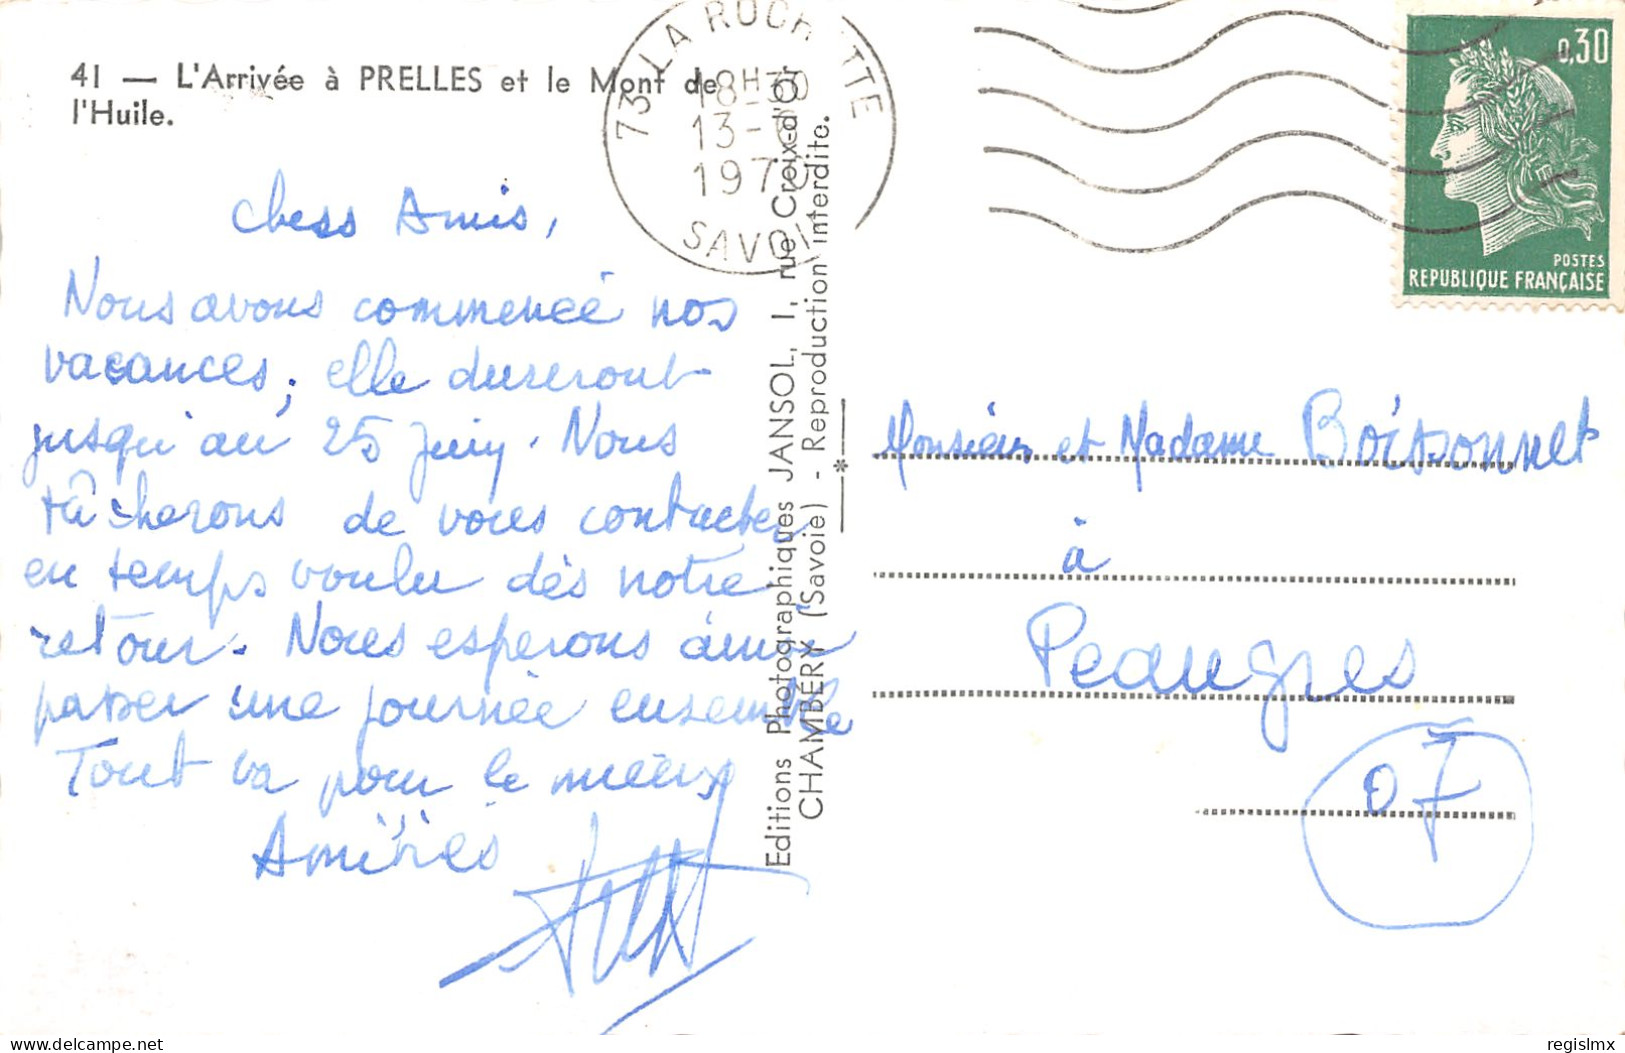 41 — L'Arrivée à PRELLES et le Mont de
l'Huile.
chess Amis,
Nous avons commencé nos
vacances, elle dureront
jusqu'au 25 Juin. Nous
tâcherons de vous contacter
en temps voulu dès notre
retour. Nous esperons
passer une journée ensemble
Tout va pour le mieux
Amitiés
73 LA ROCHETTE
18H30
13-6
1970
SAVOIE
Editions Photographiques JANSOL, 1, rue Croix-d'Or
CHAMBÉRY (Savoie) - Reproduction interdite.
0,30
POSTES
REPUBLIQUE FRANÇAISE
Monsieur et Madame Boissonnet
à
Peaugres
07
regislmx
delcampe.net